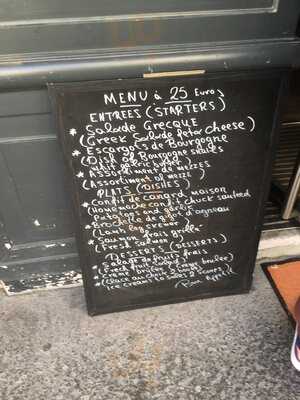 MENU à 25 Euro
ENTREES (STARTERS)
* Salade GRECQUE
(Greek Salade feta cheese)
* Escargots de Bourgogne
(Dish of Bourgogne snails
* Assortiment de MEZZES
(Assortiment of mezze)
PLATS (DISHES)
* Confit de canard maison
(Homemade confit
Potatoes and garlic
* Brochette de gigot d'agneau
(Lamb leg
* Saumon frais grillé
(Fresh Salmon)
DESSERTS (DESSERTS)
* Salade de fruits frais
(Fresh fruit salad)
* Creme brulée (Creme brulée)
* Glace au choix 2 boules
(Ice cream 2 scoops)
Bon Appetit